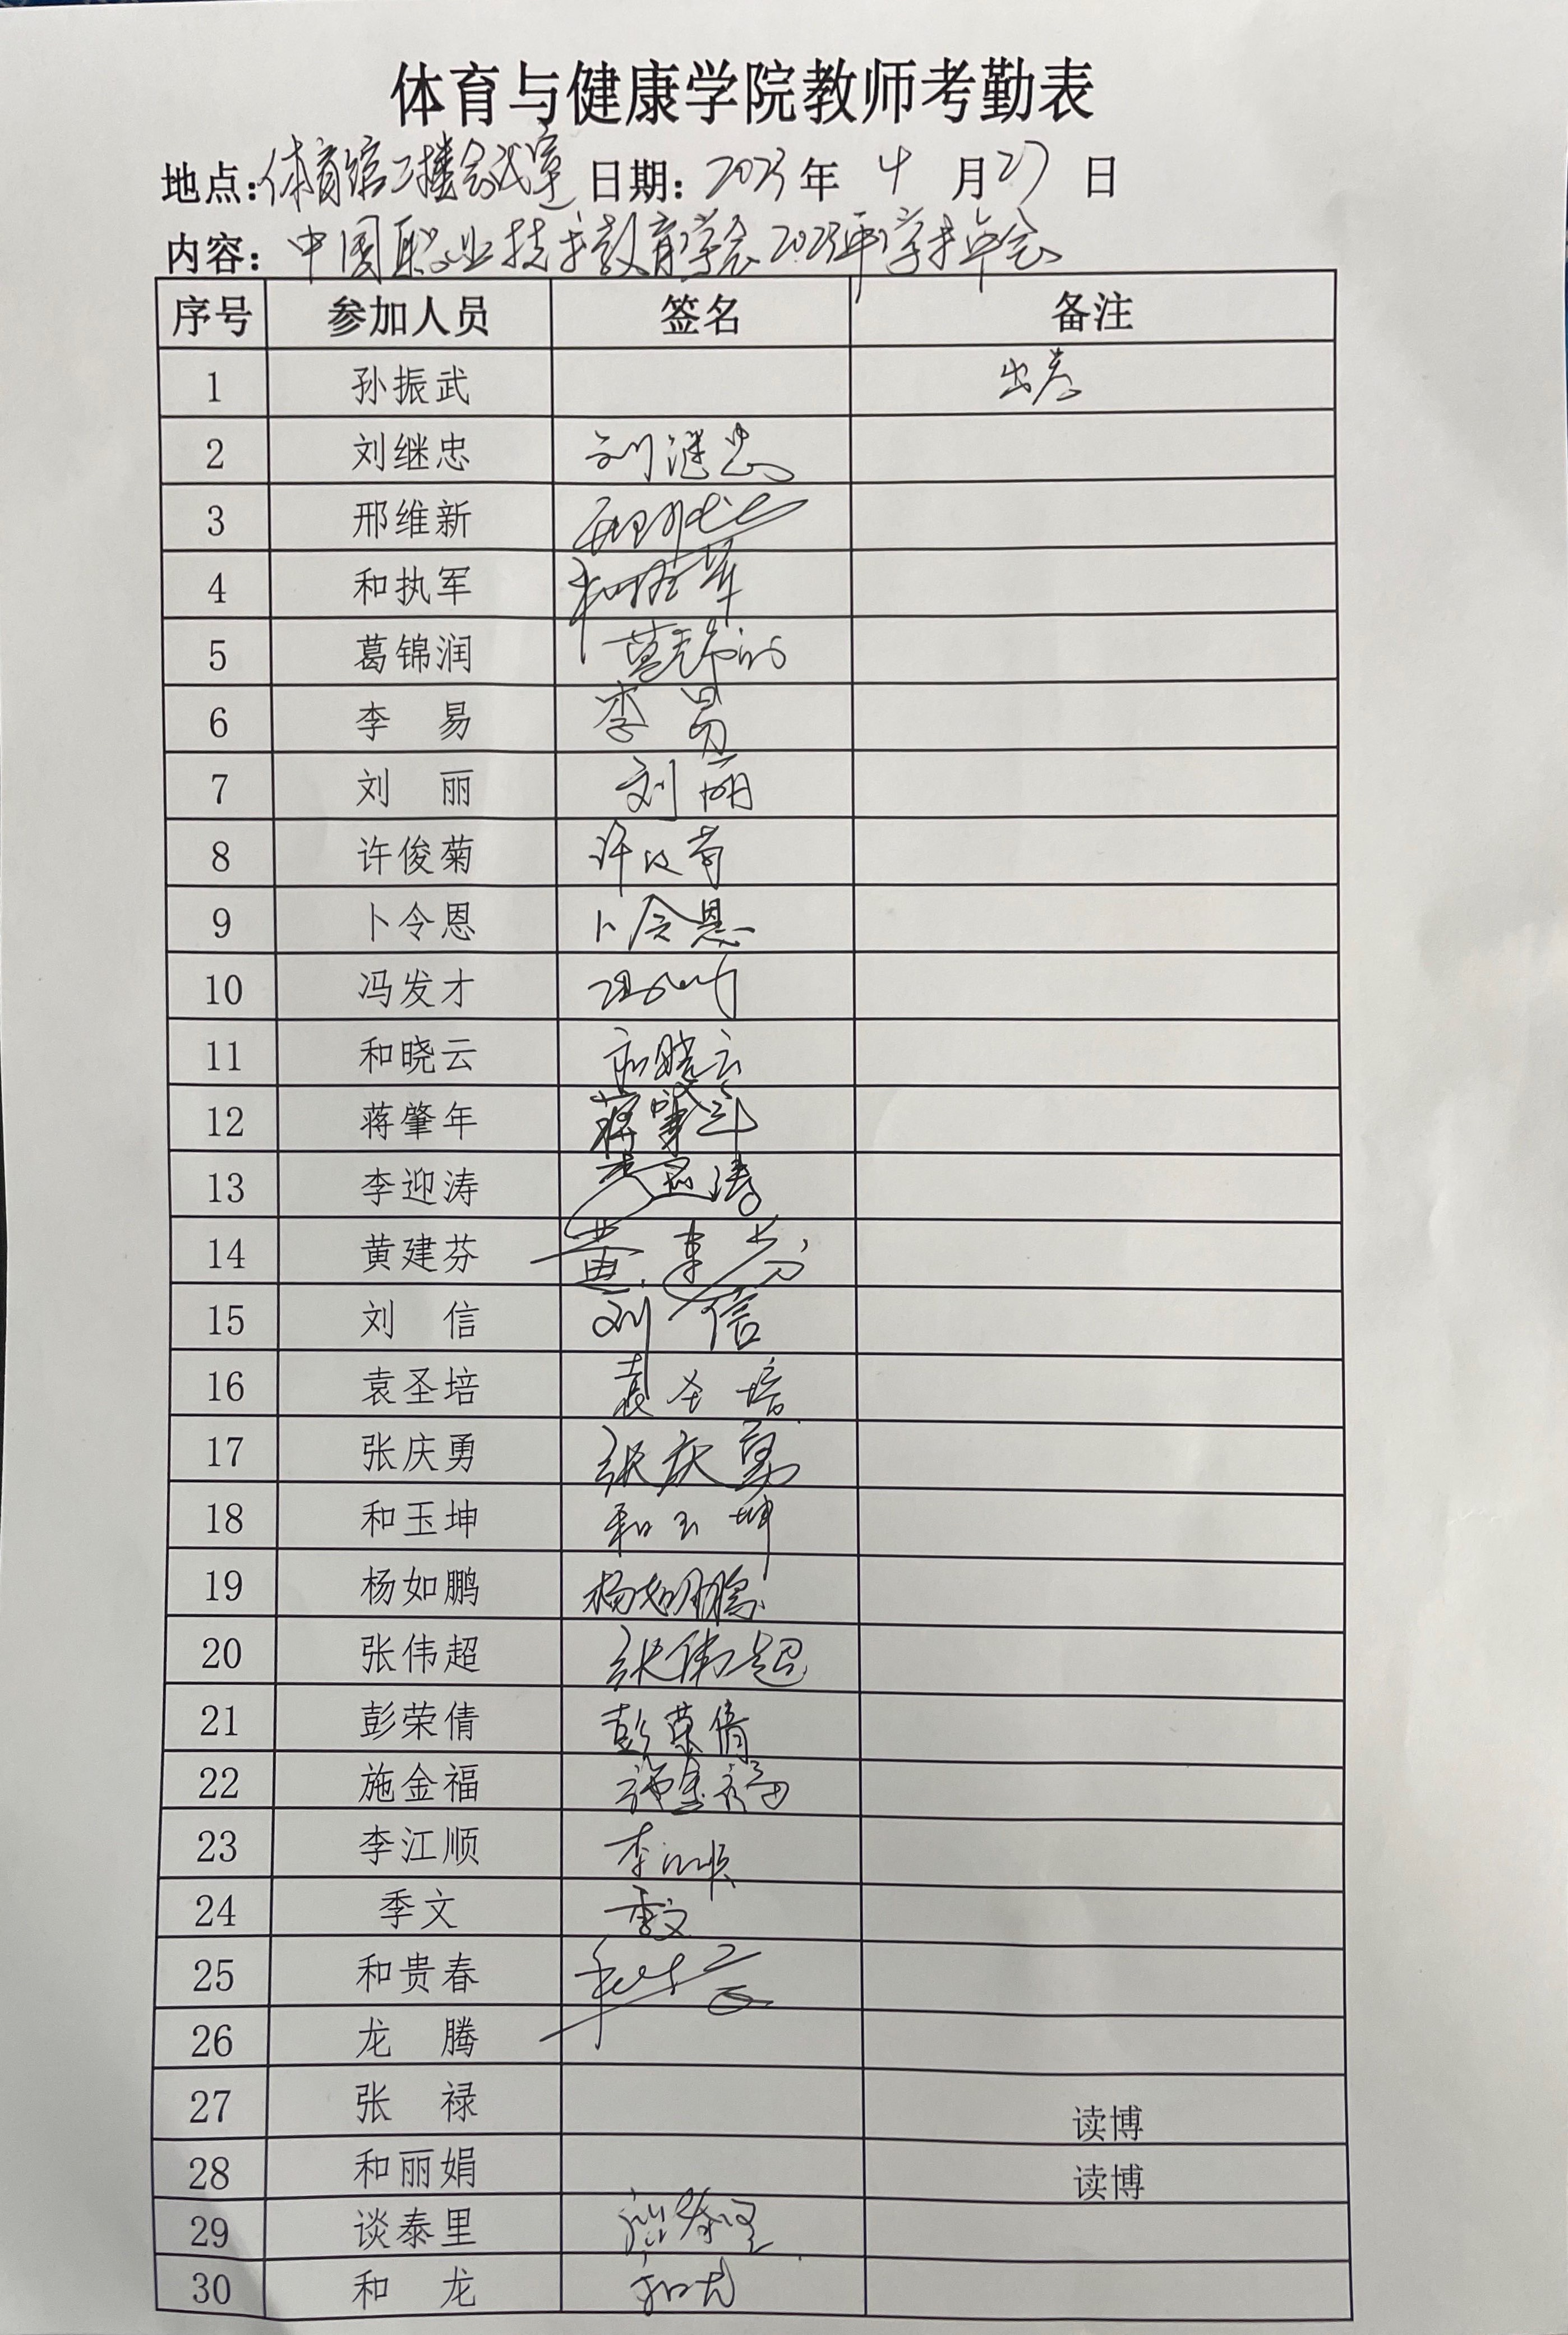 体育与健康学院教师考勤表
地点:体育馆二楼会议室 日期:2023年 4 月27 日
内容:中国职业技术教育学会2023年学术年会
序号 参加人员 签名 备注
1 孙振武 出差
2 刘继忠 刘继忠
3 邢维新
4 和执军 和执军
5 葛锦润 葛锦润
6 李 易 李易
7 刘 丽 刘丽
8 许俊菊 许俊菊
9 卜令恩 卜令恩
10 冯发才
11 和晓云 和晓云
12 蒋肇年 蒋肇年
13 李迎涛 李迎涛
14 黄建芬 黄建芬
15 刘 信 刘信
16 袁圣培 袁圣培
17 张庆勇 张庆勇
18 和玉坤 和玉坤
19 杨如鹏 杨如鹏
20 张伟超 张伟超
21 彭荣倩 彭荣倩
22 施金福 施金福
23 李江顺 李江顺
24 季文 季文
25 和贵春
26 龙 腾
27 张 禄 读博
28 和丽娟 读博
29 谈泰里 谈泰里
30 和 龙 和龙